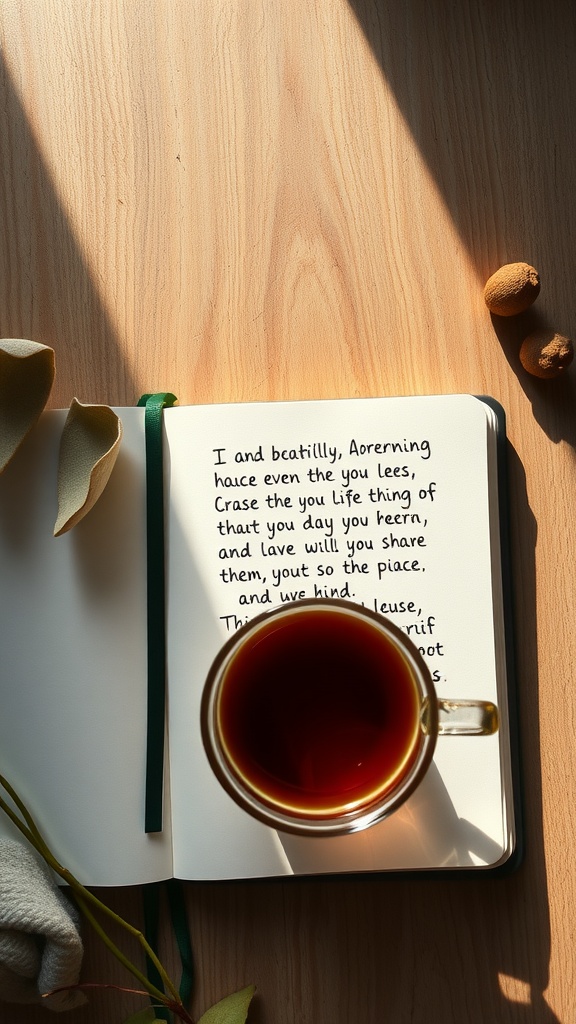 I and bcatillly, Aorerning
hauce even the you lees,
Crase the you life thing of
thart you day you heern,
and lave willl you share
them, yout so the piace,
and uve hind.
leuse,